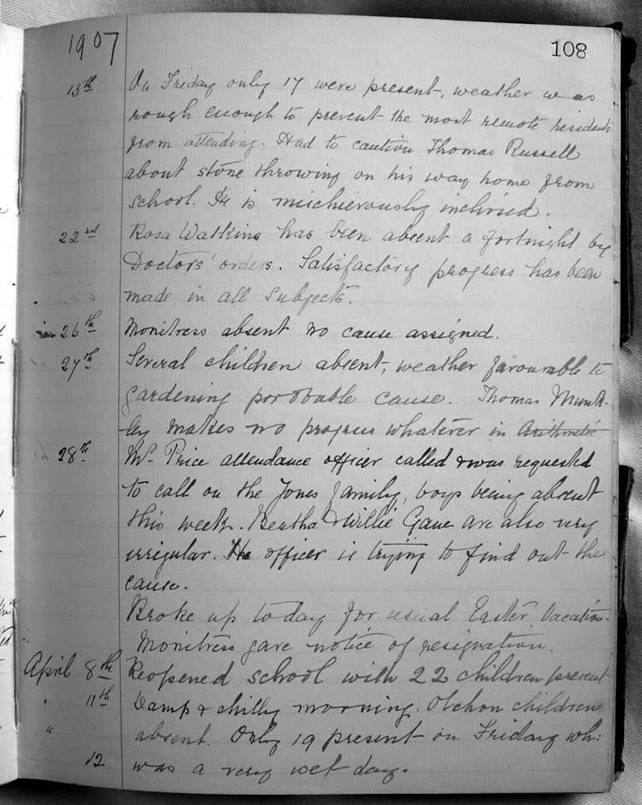 1907
108
15th On Friday only 17 were present, weather was
rough enough to prevent the most remote residents
from attending. Had to caution Thomas Russell
about stone throwing on his way home from
school. He is mischievously inclined.
22nd Rosa Watkins has been absent a fortnight by
Doctors' orders. Satisfactory progress has been
made in all subjects.
26th Monitress absent no cause assigned.
27th Several children absent, weather favourable to
gardening porobable cause. Thomas Munk-
ley makes no progress whatever in Arithmetic
28th Mr Price attendance officer called & was requested
to call on the Jones family, boys being absent
this week. Bertha & Willie Gane are also very
irregular. The officer is trying to find out the
cause.
Broke up to day for usual Easter Vacation.
Monitress gave notice of resignation.
April 8th Reopened school with 22 children present
" 11th Damp & chilly morning. Olchon children
" absent. Only 19 present on Friday wh:
12 was a very wet day.